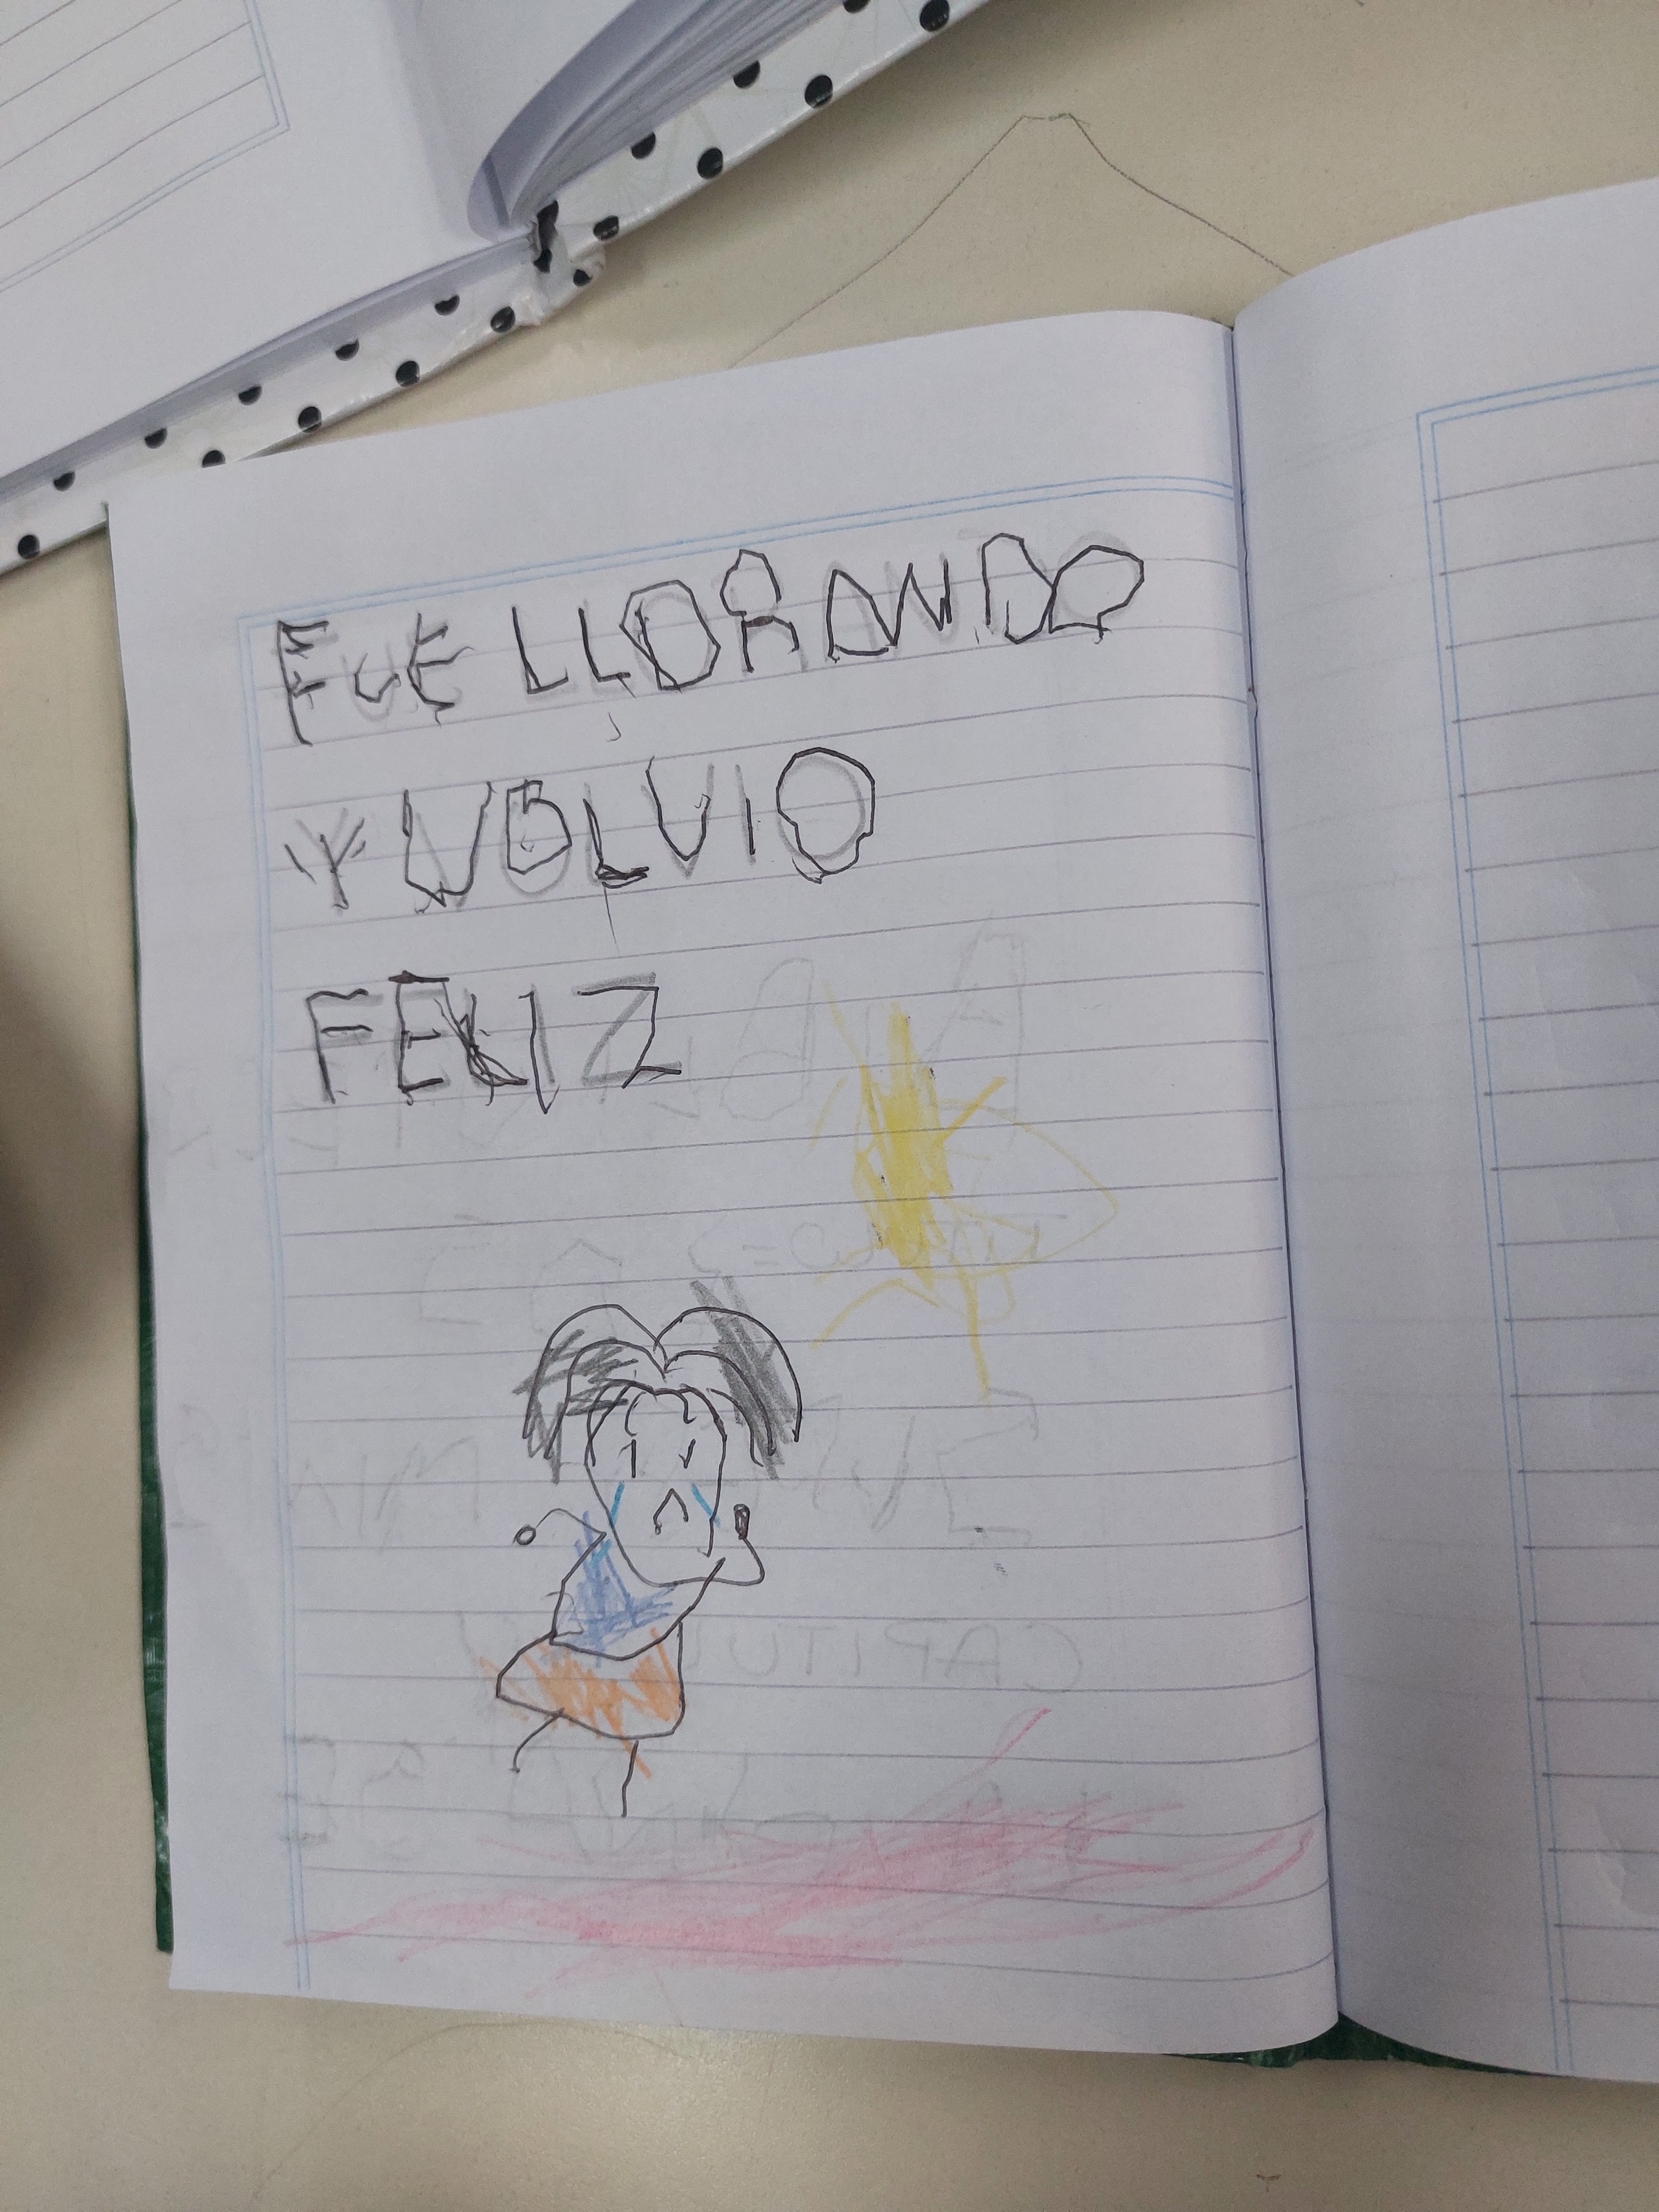 FUE LLORANDO
Y VOLVIO
FELIZ